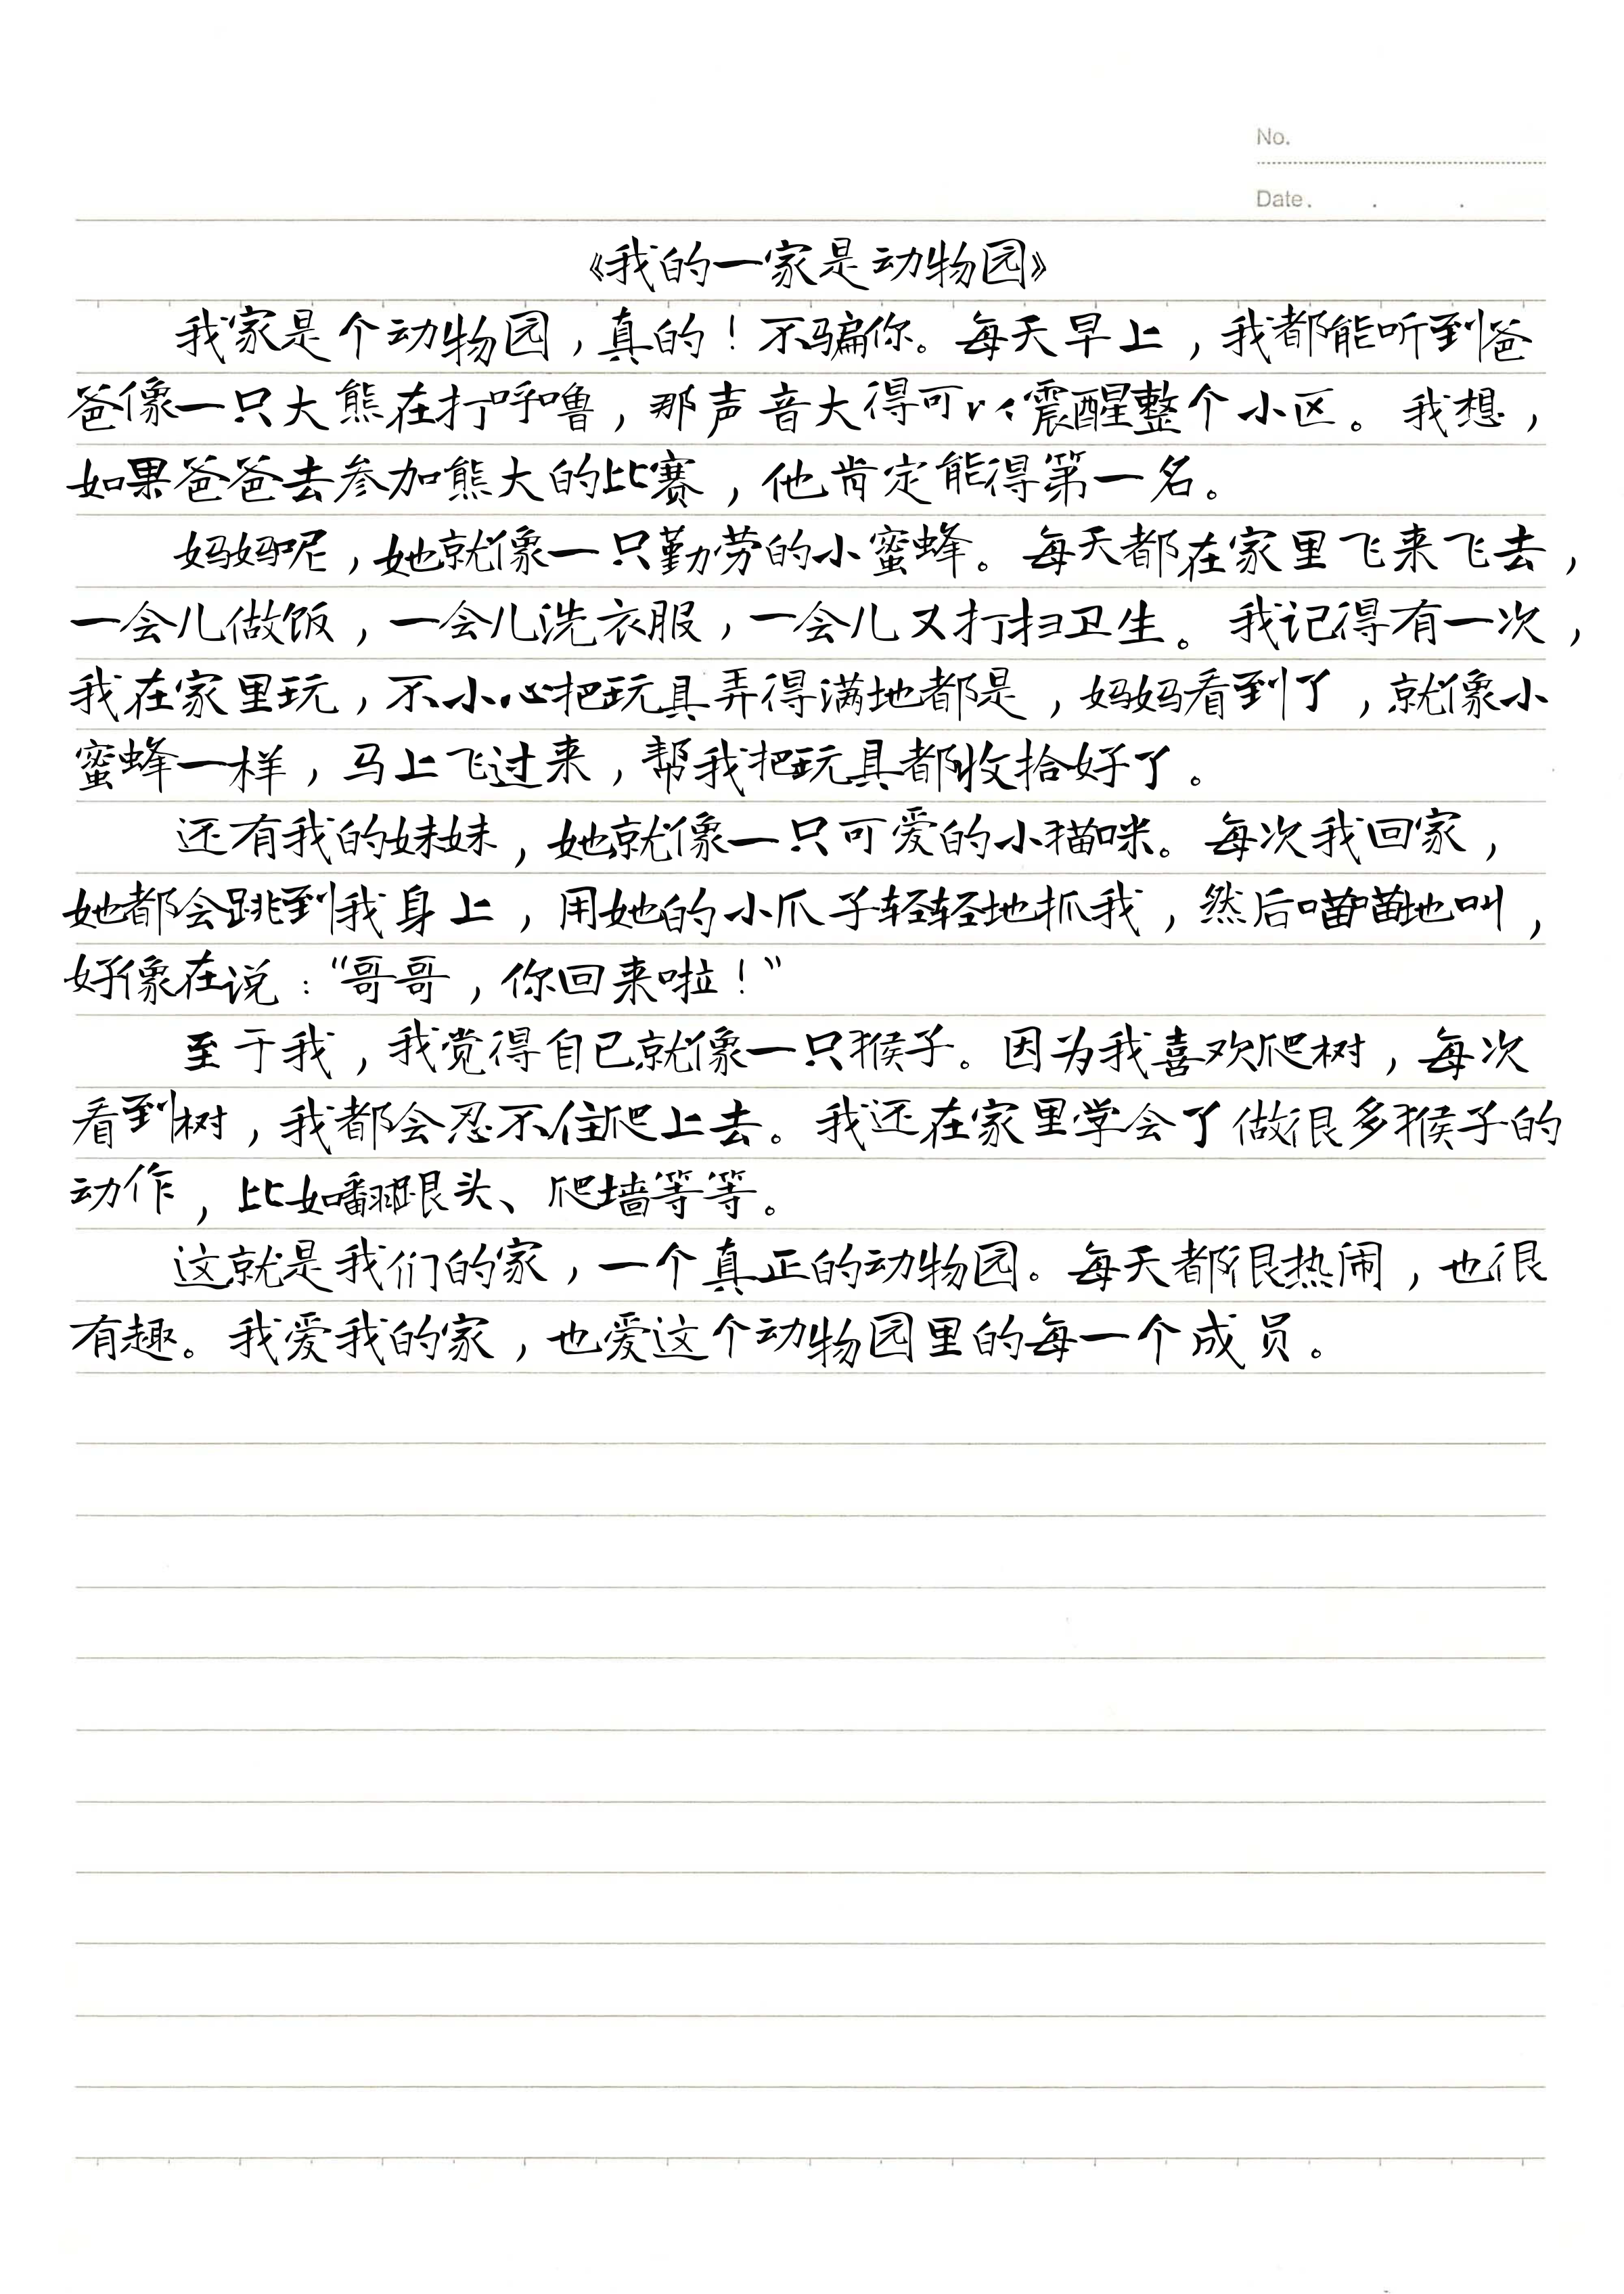 No.
Date.   .   .
《我的一家是动物园》
我家是个动物园，真的！不骗你。每天早上，我都能听到爸
爸像一只大熊在打呼噜，那声音大得可以震醒整个小区。我想，
如果爸爸去参加熊大的比赛，他肯定能得第一名。
妈妈呢，她就像一只勤劳的小蜜蜂。每天都在家里飞来飞去，
一会儿做饭，一会儿洗衣服，一会儿又打扫卫生。我记得有一次，
我在家里玩，不小心把玩具弄得满地都是，妈妈看到了，就像小
蜜蜂一样，马上飞过来，帮我把玩具都收拾好了。
还有我的妹妹，她就像一只可爱的小猫咪。每次我回家，
她都会跳到我身上，用她的小爪子轻轻地抓我，然后喵喵地叫，
好像在说：“哥哥，你回来啦！”
至于我，我觉得自己就像一只猴子。因为我喜欢爬树，每次
看到树，我都会忍不住爬上去。我还在家里学会了做很多猴子的
动作，比如翻跟头、爬墙等等。
这就是我们的家，一个真正的动物园。每天都很热闹，也很
有趣。我爱我的家，也爱这个动物园里的每一个成员。